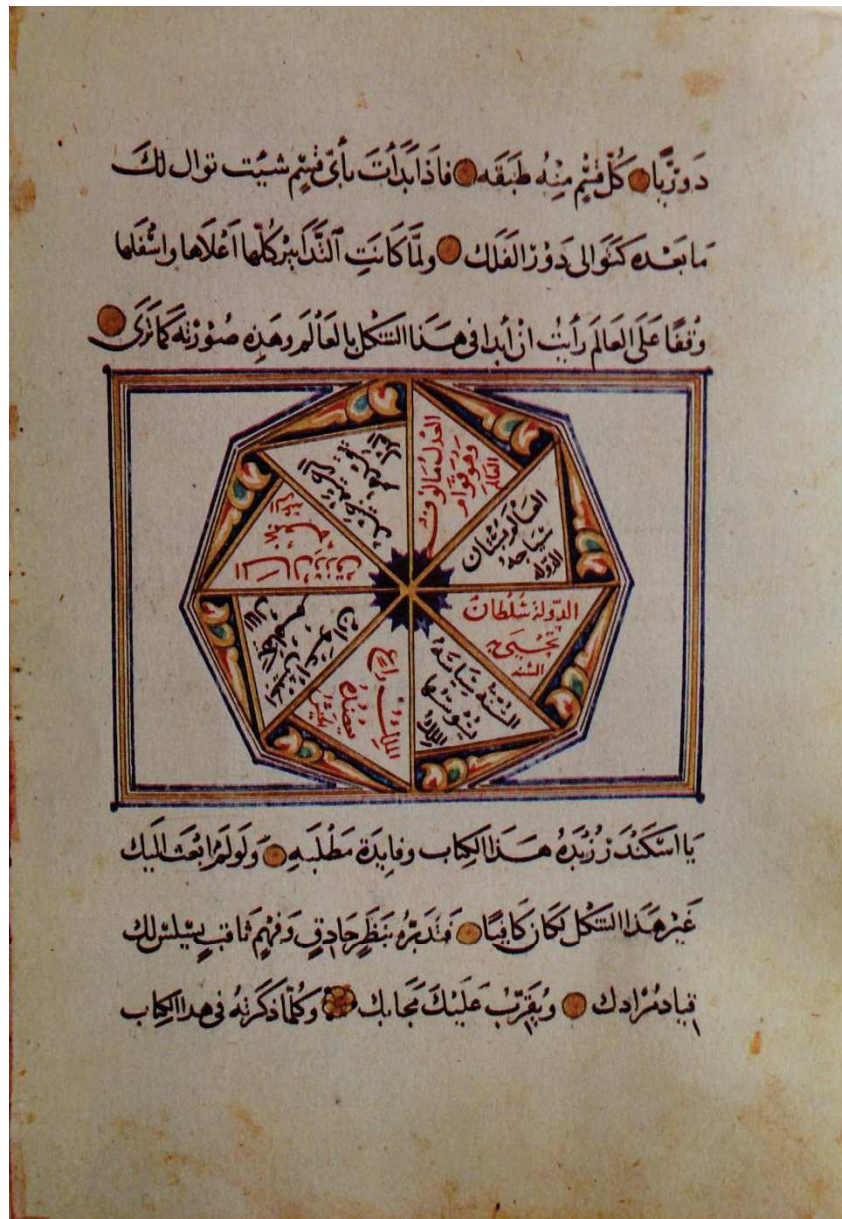 دَوريًّا كُلّ قِسْمٍ مِنْهُ طبَقَه فَاذَا بَدَأتَ بأىّ قِسْمٍ شئت توال لك
مَا بَعْدَه كَتَوالى دَوْر الفَلَك ولمَّا كَانَتِ التَّدَابِيْر كُلّها اَعْلَاها واسْفَلها
وُقفًا عَلَى العَالَم رَأيتُ انْ أبدا فى هَذا الشكل بالعَالَم وهَذِه صُوْرته كَمَا تَرَى
العَدْل مَالوف
وَهُوَ قوَام
العَالَم
العَالم بسْتان
سيَاجه
الدوله
الدّولة سُلطَان
تحْيَى به
السنه
السُّنّة سِيَاسَة
يَسُوسُهَا
الملك
الملك رَاعٍ
يعضدهُ
الجَيش
الجَيش اعوَان
يكفلهم
المال
المَال رزق
تجمعه
الرعيه
يَا اسكَنْدَر زُبْدَةُ هَذَا الكِتاب وفايدَة مَطْلَبهِ وَلَو لَمْ ابْعَث اليك
غَيْر هَذا الشكل لكَان كَافيًا فتَدَبّرْهُ بنَظَرٍ حَاذِقٍ وَفَهْمٍ ثاقبٍ يسْلس لك
قياد مُرَادك ويُقَرِّبْ عَلَيْكَ مَحَابك وَكُلّمَا ذكَرتهُ فى هذا الكِتاب